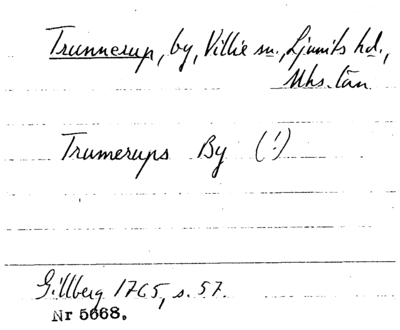 Trunnerup, by, Villie sn., Ljunits hd.,
Mhs. län
Trumerups By (!)
Gillberg 1765, s. 57.
Nr 5668.